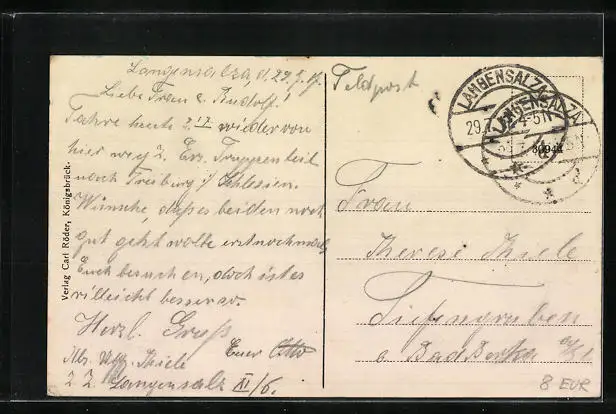 Langensalza, d. 29.7.17.
Liebe Frau u. Rudolf!
Fahre heute wieder von
hier weg z. Ers. Truppenteil
nach Freiburg i/ Schlesien.
Wünsche, daß es beiden noch
gut geht wollte erst nochmals
Euch besuchen, doch ist es
vielleicht besser so.
Herzl. Gruß
Euer Otto
Abs. Uffz. Thiele
z. Z. Langensalza XI/6.
Verlag Carl Röder, Königsbrück.
Feldpost
LANGENSALZA
29.7. 4-5N
LANGENSALZA
30944
Frau
Therese Thiele
Tiefengruben
b. Bad Berka
8 EUR